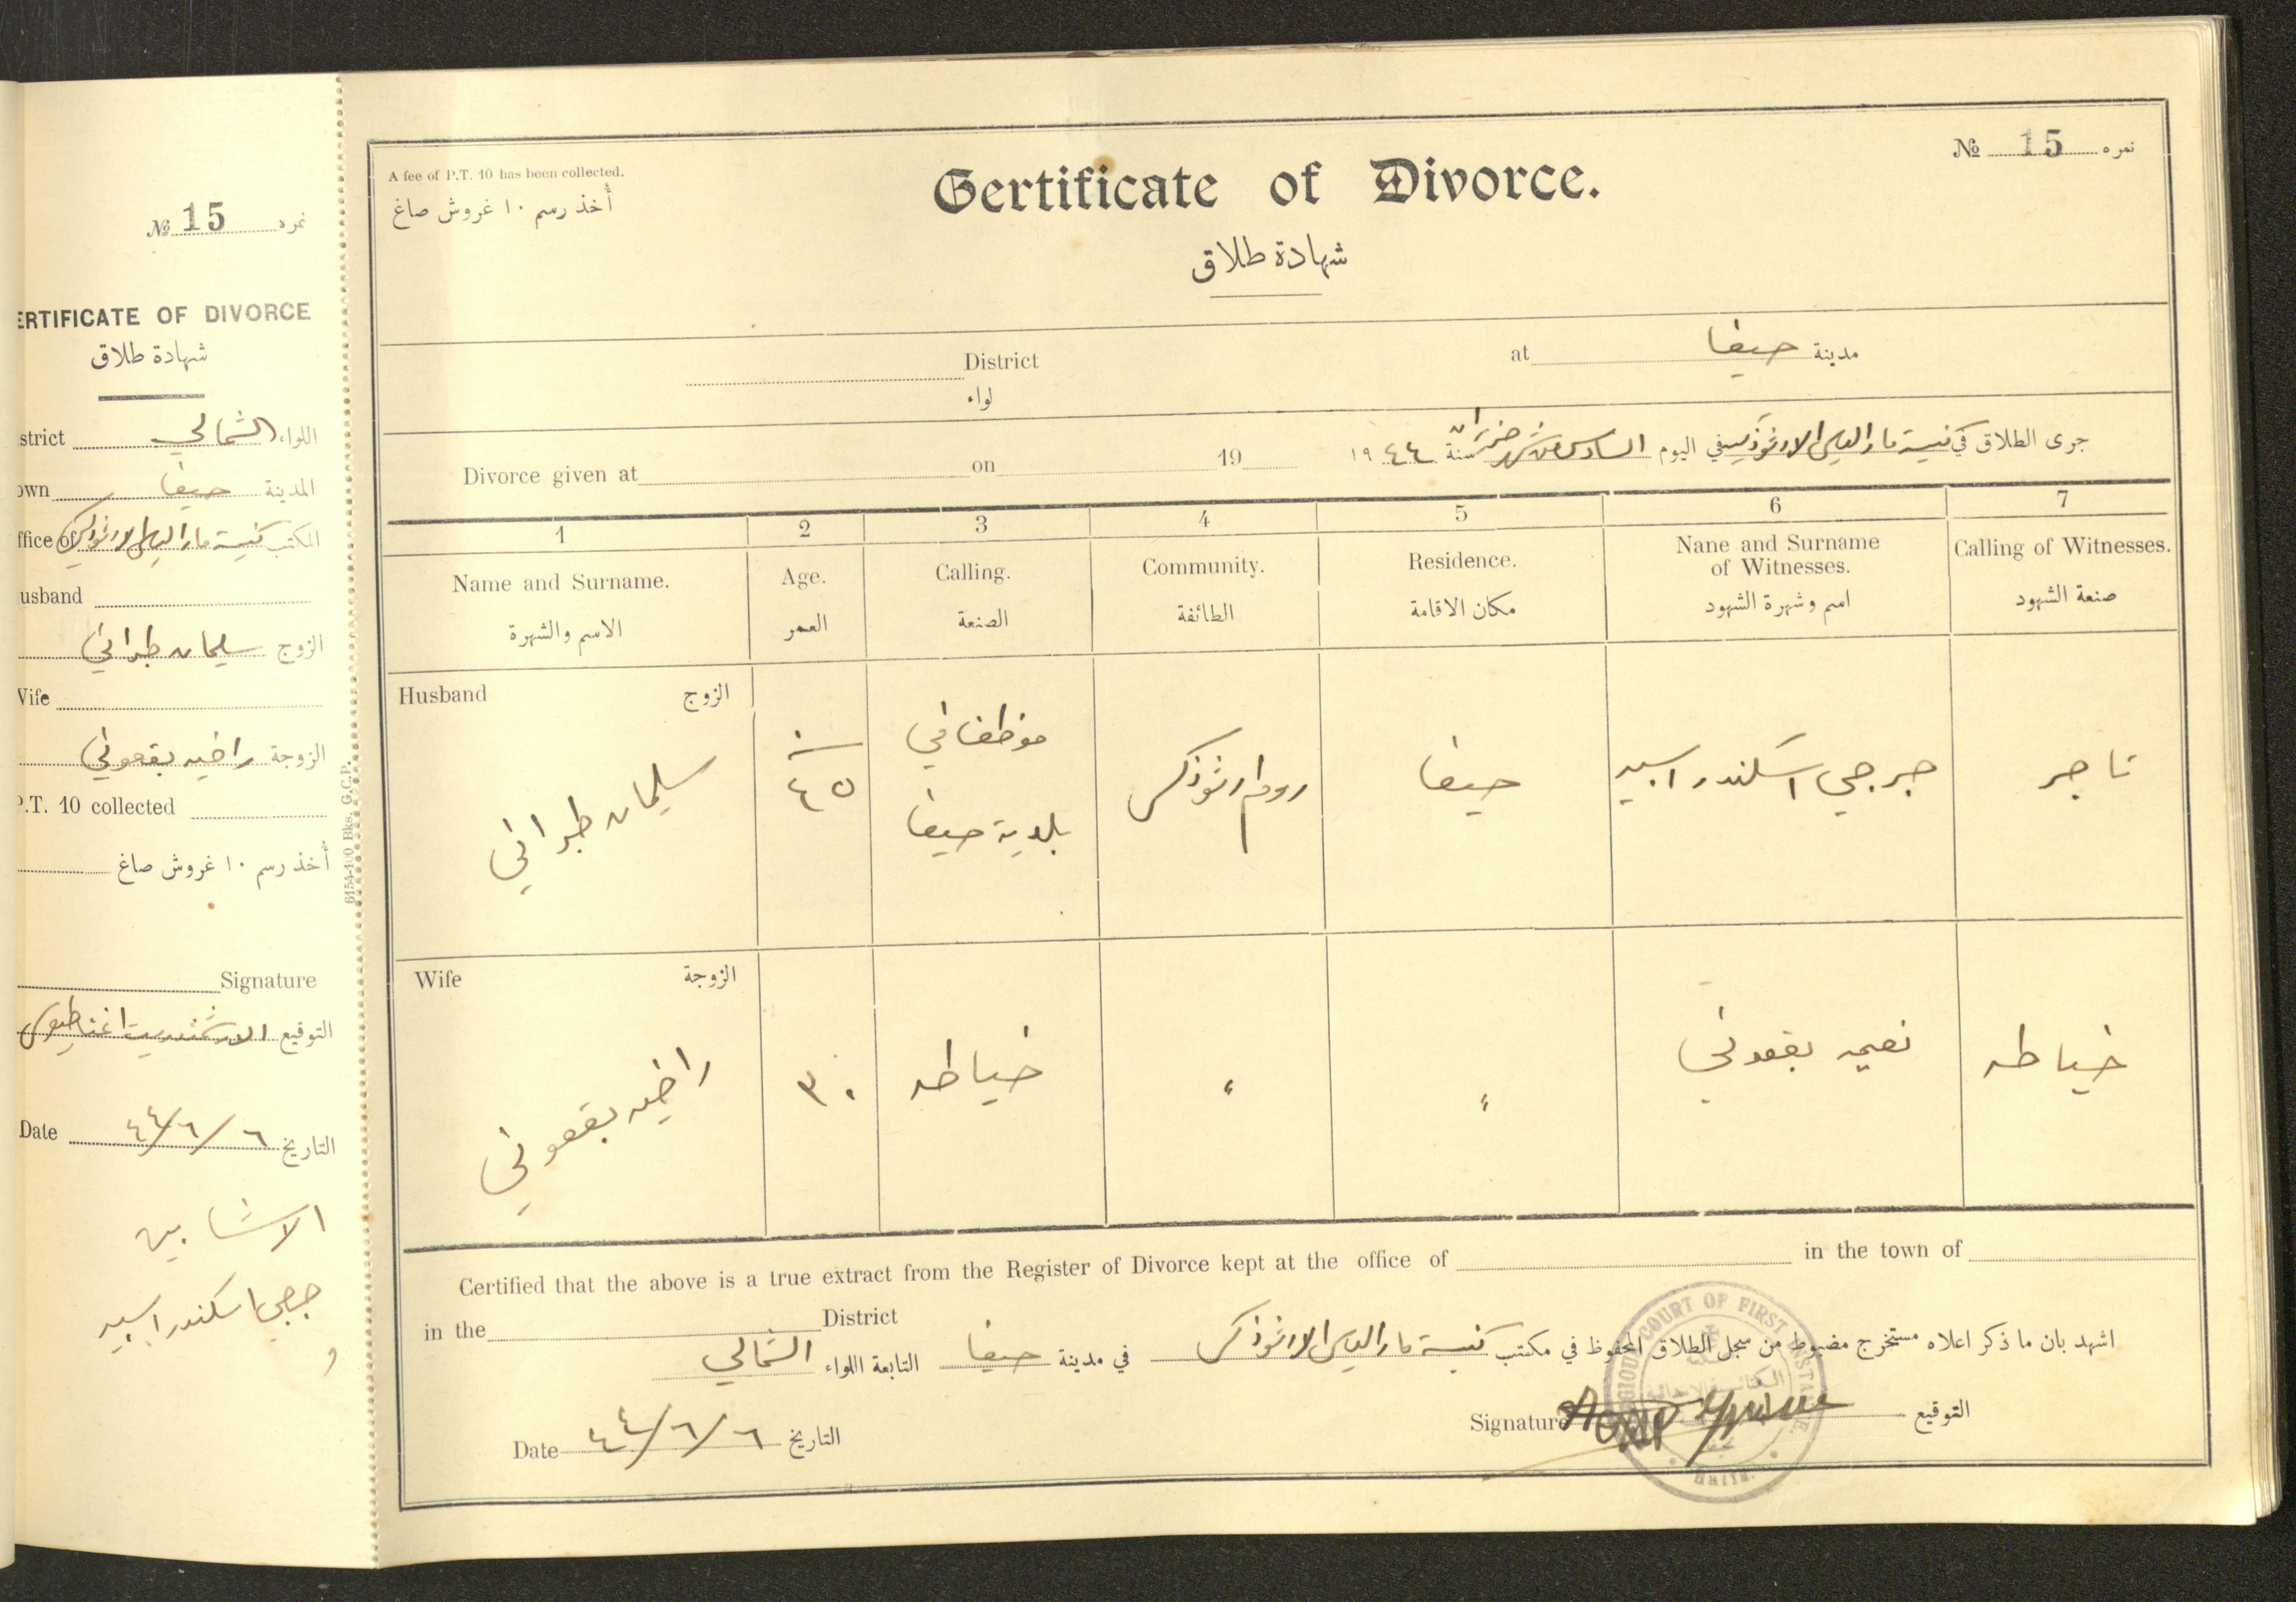 № 15 نمره
CERTIFICATE OF DIVORCE
شهادة طلاق
District الشمالي اللواء
Town حيفا المدينة
Office of كنيسة مار الياس الارثوذكس المكتب
Husband
الزوج سليمان طبراني
Wife
الزوجة راضيه بقعوني
P.T. 10 collected
أخذ رسم ١٠ غروش صاغ
Signature
التوقيع الارشمندريت اغناطيوس
Date ٦/٦/٤٤ التاريخ
الاشابين
جرجي اسكندر اسبير
و
6154-100 Bks. G.C.P.
A fee of P.T. 10 has been collected.
أخذ رسم ١٠ غروش صاغ
Certificate of Divorce.
شهادة طلاق
№ 15 نمره
District at حيفا مدينة
لواء
Divorce given at on 19
جرى الطلاق في كنيسة مار الياس الارثوذكسي في اليوم السادس من شهر حزيران سنة ١٩٤٤
1 2 3 4 5 6 7
Name and Surname. Age. Calling. Community. Residence. Nane and Surname of Witnesses. Calling of Witnesses.
الاسم والشهرة العمر الصنعة الطائفة مكان الاقامة اسم وشهرة الشهود صنعة الشهود
Husband الزوج
سليمان طبراني
سنة ٤٥
موظف في
بلدية حيفا
روم ارثوذكس
حيفا
جرجي اسكندر اسبير
تاجر
Wife الزوجة
راضيه بقعوني
٣٠
خياطه
"
"
نعيمه بقعوني
خياطه
Certified that the above is a true extract from the Register of Divorce kept at the office of in the town of
in the District
اشهد بان ما ذكر اعلاه مستخرج مضبوط من سجل الطلاق المحفوظ في مكتب كنيسة مار الياس الارثوذكس في مدينة حيفا التابعة اللواء الشمالي
Date ٦/٦/٤٤ التاريخ
Signature التوقيع
RELIGIOUS COURT OF FIRST INSTANCE
HAIFA